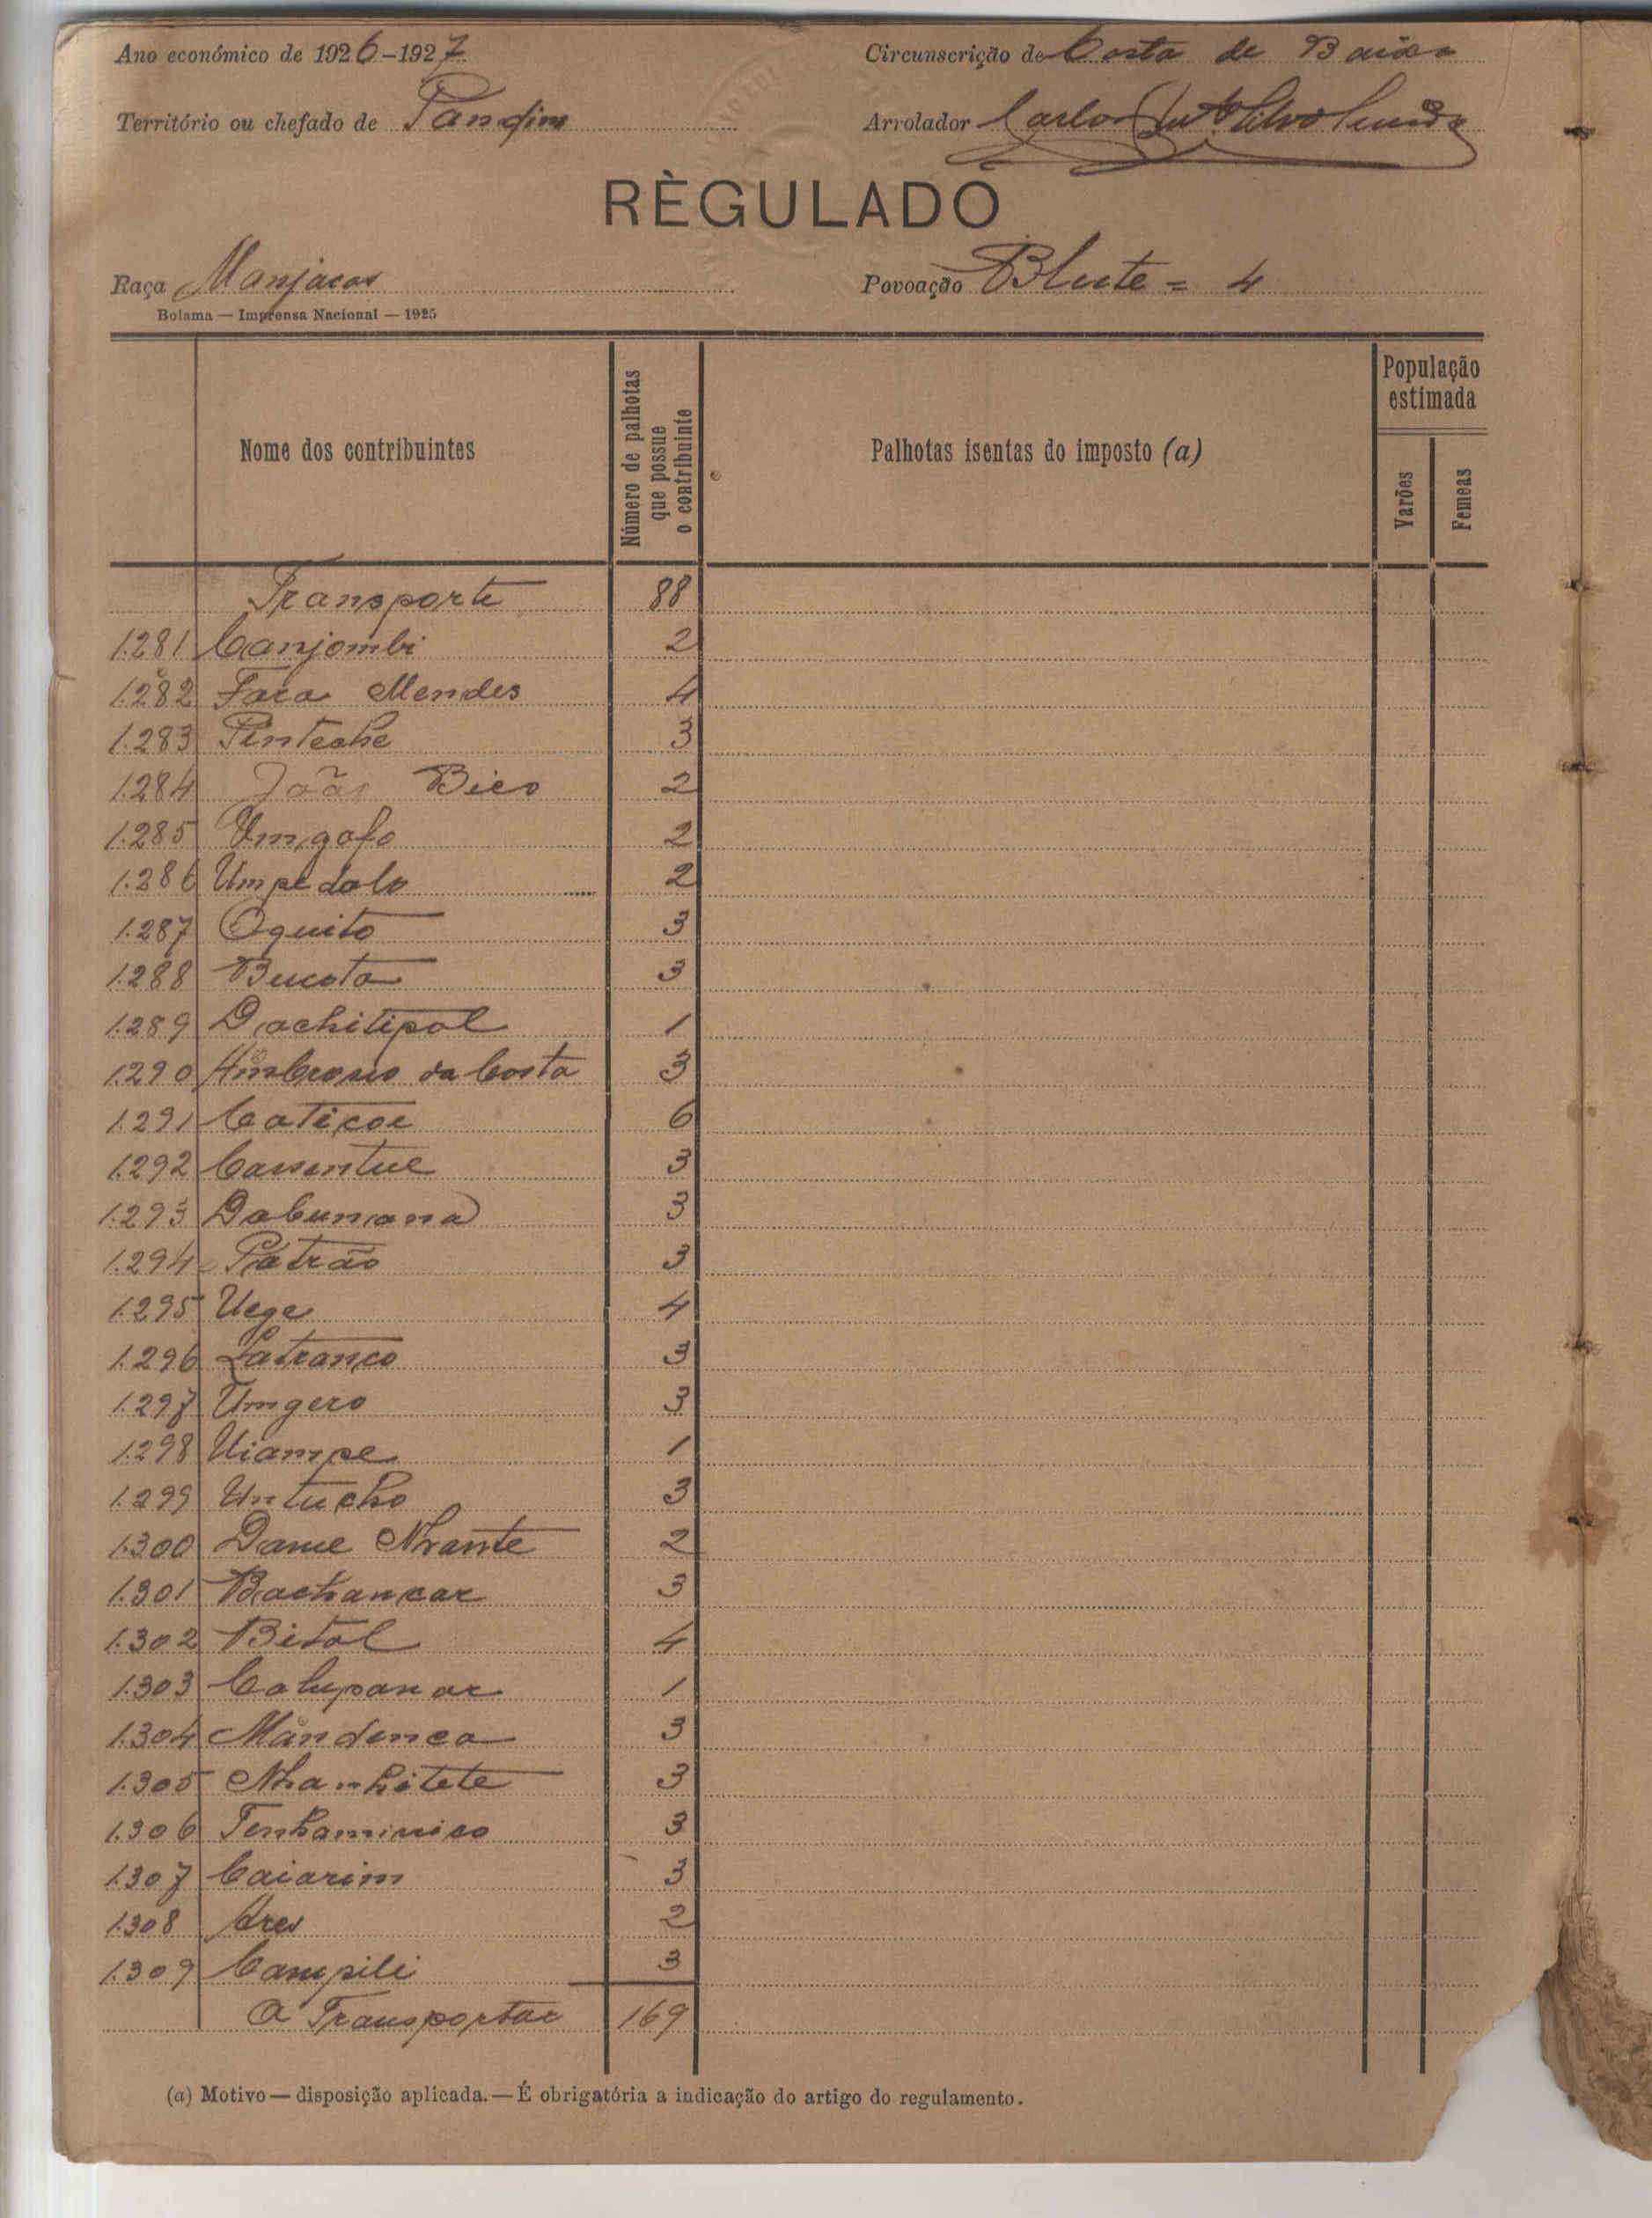 Ano económico de 1926-1927 Circunscrição de Costa de Baixo
Território ou chefado de Pandim Arrolador Carlos
RÈGULADO
Raça Manjacos Povoação Blute = 4
Bolama — Imprensa Nacional — 1925
Nome dos contribuintes Número de palhotas que possue o contribuinte Palhotas isentas do imposto (a) População estimada Varões Femeas
Transporte 88
1.281 Canjombi 2
1.282 Fara Mendes 4
1.283 Pinteche 3
1.284 João Bico 2
1.285 Umgofo 2
1.286 Umpedolo 2
1.287 Oquito 3
1.288 Bucota 3
1.289 Dachitipol 1
1.290 Ambrosio da Costa 3
1.291 Caticor 6
1.292 Cassentue 3
1.293 Dabumana 3
1.294 Patrão 3
1.295 Uege 4
1.296 Latranco 3
1.297 Umgero 3
1.298 Uiampe 1
1.299 Untucho 3
1.300 Dame Nhante 2
1.301 Bachancar 3
1.302 Bitol 4
1.303 Calupanar 1
1.304 Mandenca 3
1.305 Nhanhitete 3
1.306 Tenhaminico 3
1.307 Caiarim 3
1.308 Ares 2
1.309 Campili 3
A Transportar 169
(a) Motivo — disposição aplicada. — É obrigatória a indicação do artigo do regulamento.